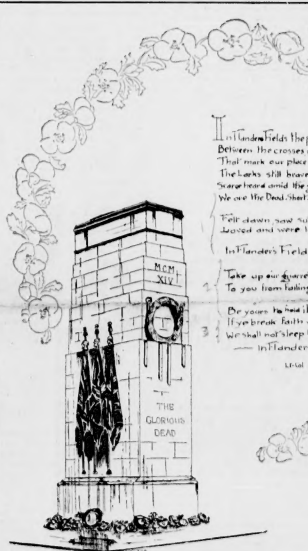 In Flanders Fields the
Between the crosses
That mark our place
The Larks still brave
Scarce heard amid the
We are the Dead. Short
Felt dawn saw su
Loved and were
In Flander's Field
Take up our quarre
2
To you from failing
Be yours to hold it
If ye break Faith
3
We shall not sleep
— In Flander
Lt-Col
M.C.M.
XIV
THE
GLORIOUS
DEAD